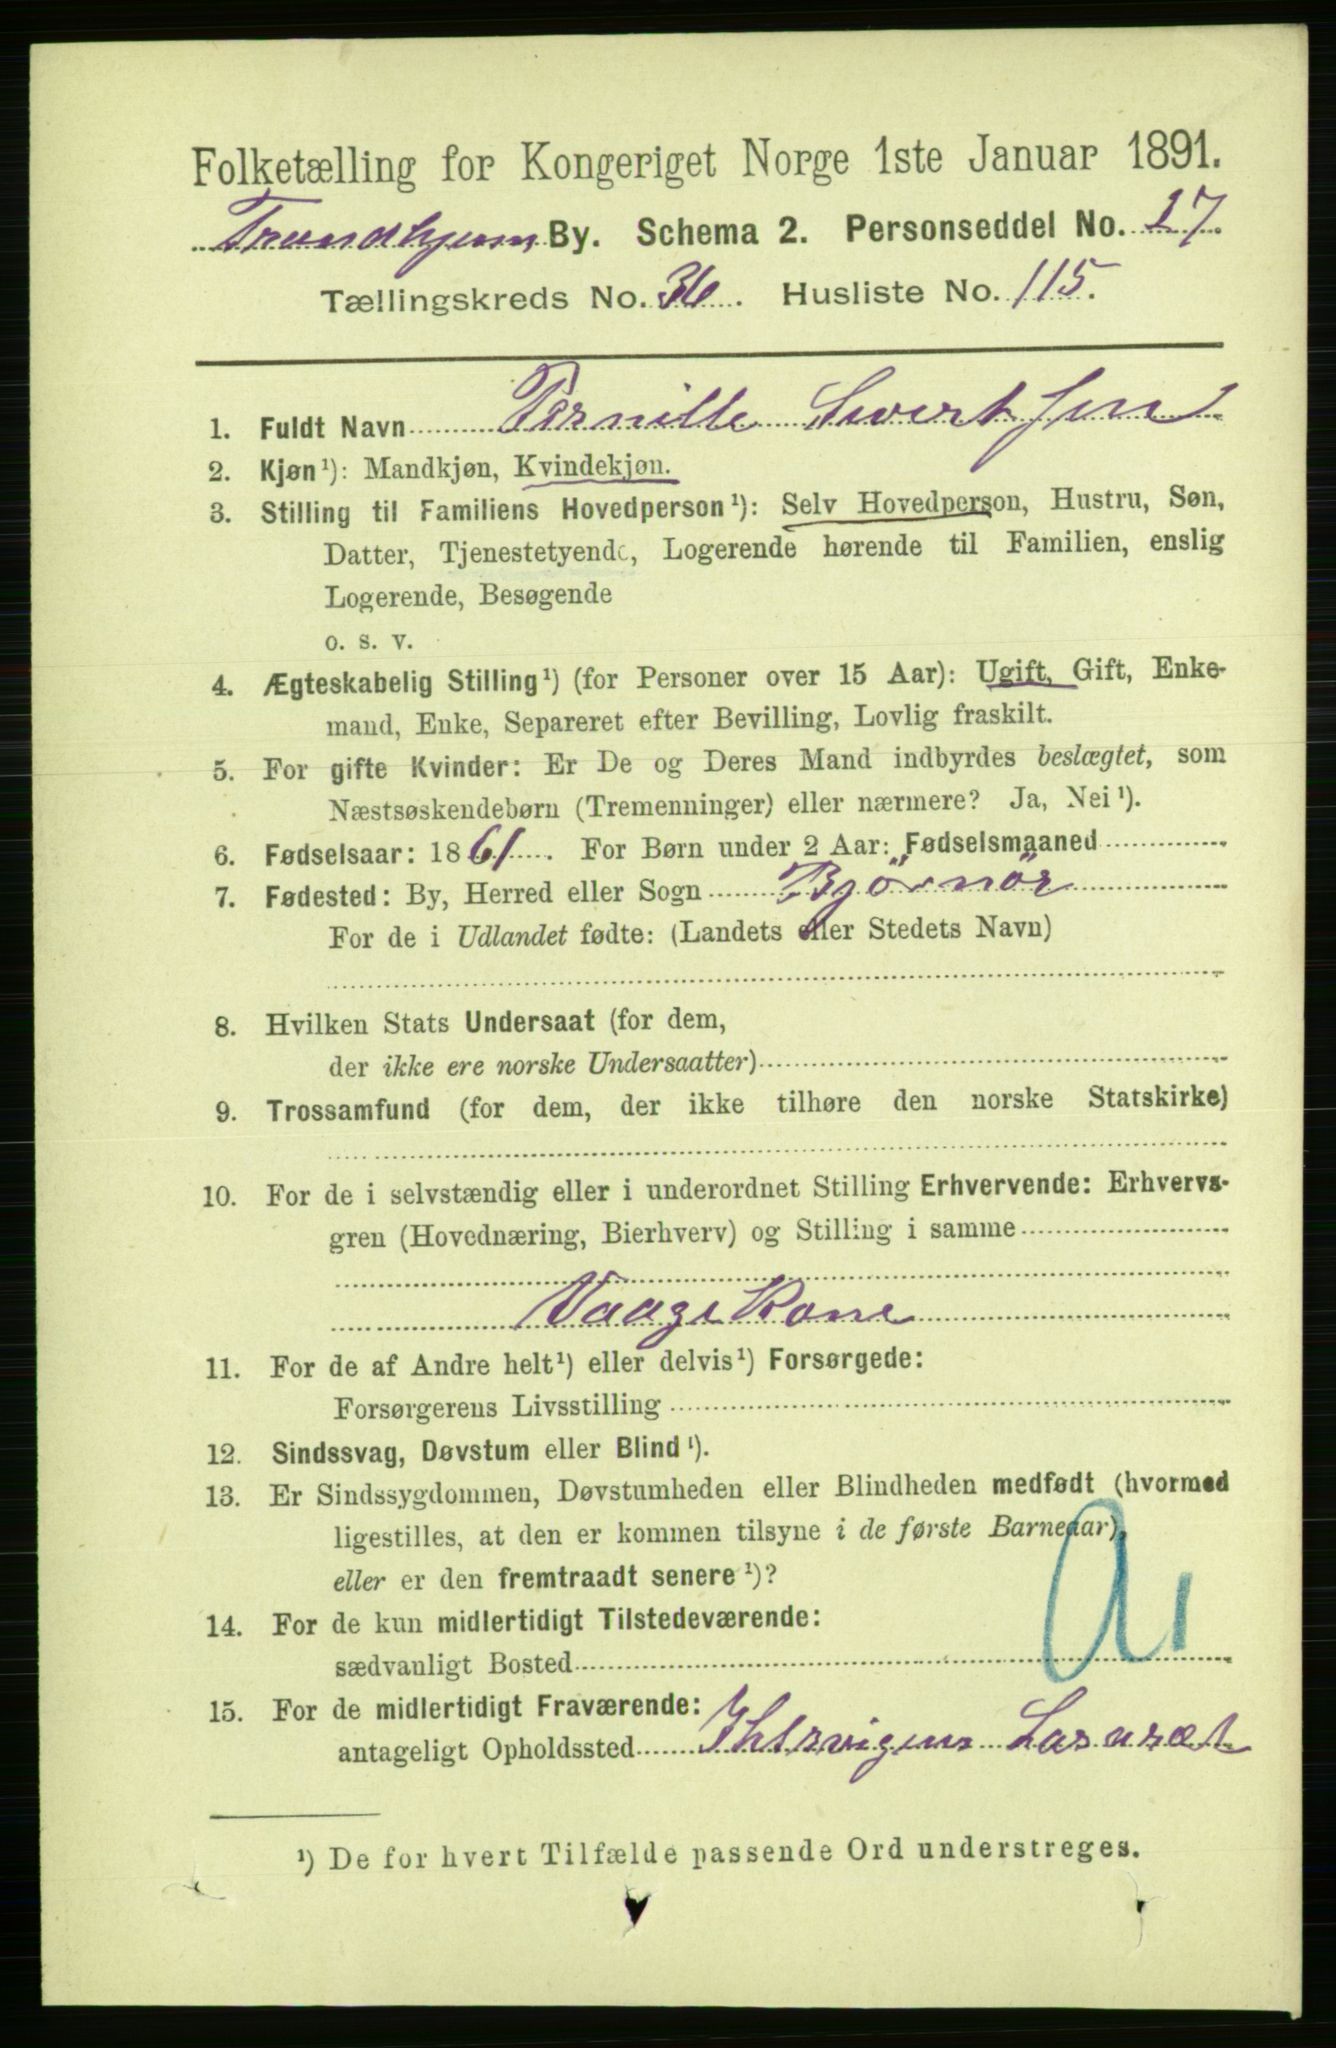 Folketælling for Kongeriget Norge 1ste Januar 1891.
Trondhjems By. Schema 2. Personseddel No. 27.
Tællingskreds No. 36. Husliste No. 115.
1. Fuldt Navn Pernille Sivertsen
2. Kjøn¹): Mandkjøn, Kvindekjøn.
3. Stilling til Familiens Hovedperson¹): Selv Hovedperson, Hustru, Søn,
Datter, Tjenestetyende, Logerende hørende til Familien, enslig
Logerende, Besøgende
o. s. v.
4. Ægteskabelig Stilling¹) (for Personer over 15 Aar): Ugift, Gift, Enke-
mand, Enke, Separeret efter Bevilling, Lovlig fraskilt.
5. For gifte Kvinder: Er De og Deres Mand indbyrdes beslægtet, som
Næstsøskendebørn (Tremenninger) eller nærmere? Ja, Nei¹).
6. Fødselsaar: 1861. For Børn under 2 Aar: Fødselsmaaned
7. Fødested: By, Herred eller Sogn Björnör
For de i Udlandet fødte: (Landets eller Stedets Navn)
8. Hvilken Stats Undersaat (for dem,
der ikke ere norske Undersaatter)
9. Trossamfund (for dem, der ikke tilhøre den norske Statskirke)
10. For de i selvstændig eller i underordnet Stilling Erhvervende: Erhvervs-
gren (Hovednæring, Bierhverv) og Stilling i samme
Vaage Kone
11. For de af Andre helt¹) eller delvis¹) Forsørgede:
Forsørgerens Livsstilling
12. Sindssvag, Døvstum eller Blind¹).
13. Er Sindssygdommen, Døvstumheden eller Blindheden medfødt (hvormed
ligestilles, at den er kommen tilsyne i de første Barneaar),
eller er den fremtraadt senere¹)?
14. For de kun midlertidigt Tilstedeværende:
sædvanligt Bosted
15. For de midlertidigt Fraværende:
antageligt Opholdssted Ihlsvigens Lasaret
¹) De for hvert Tilfælde passende Ord understreges.